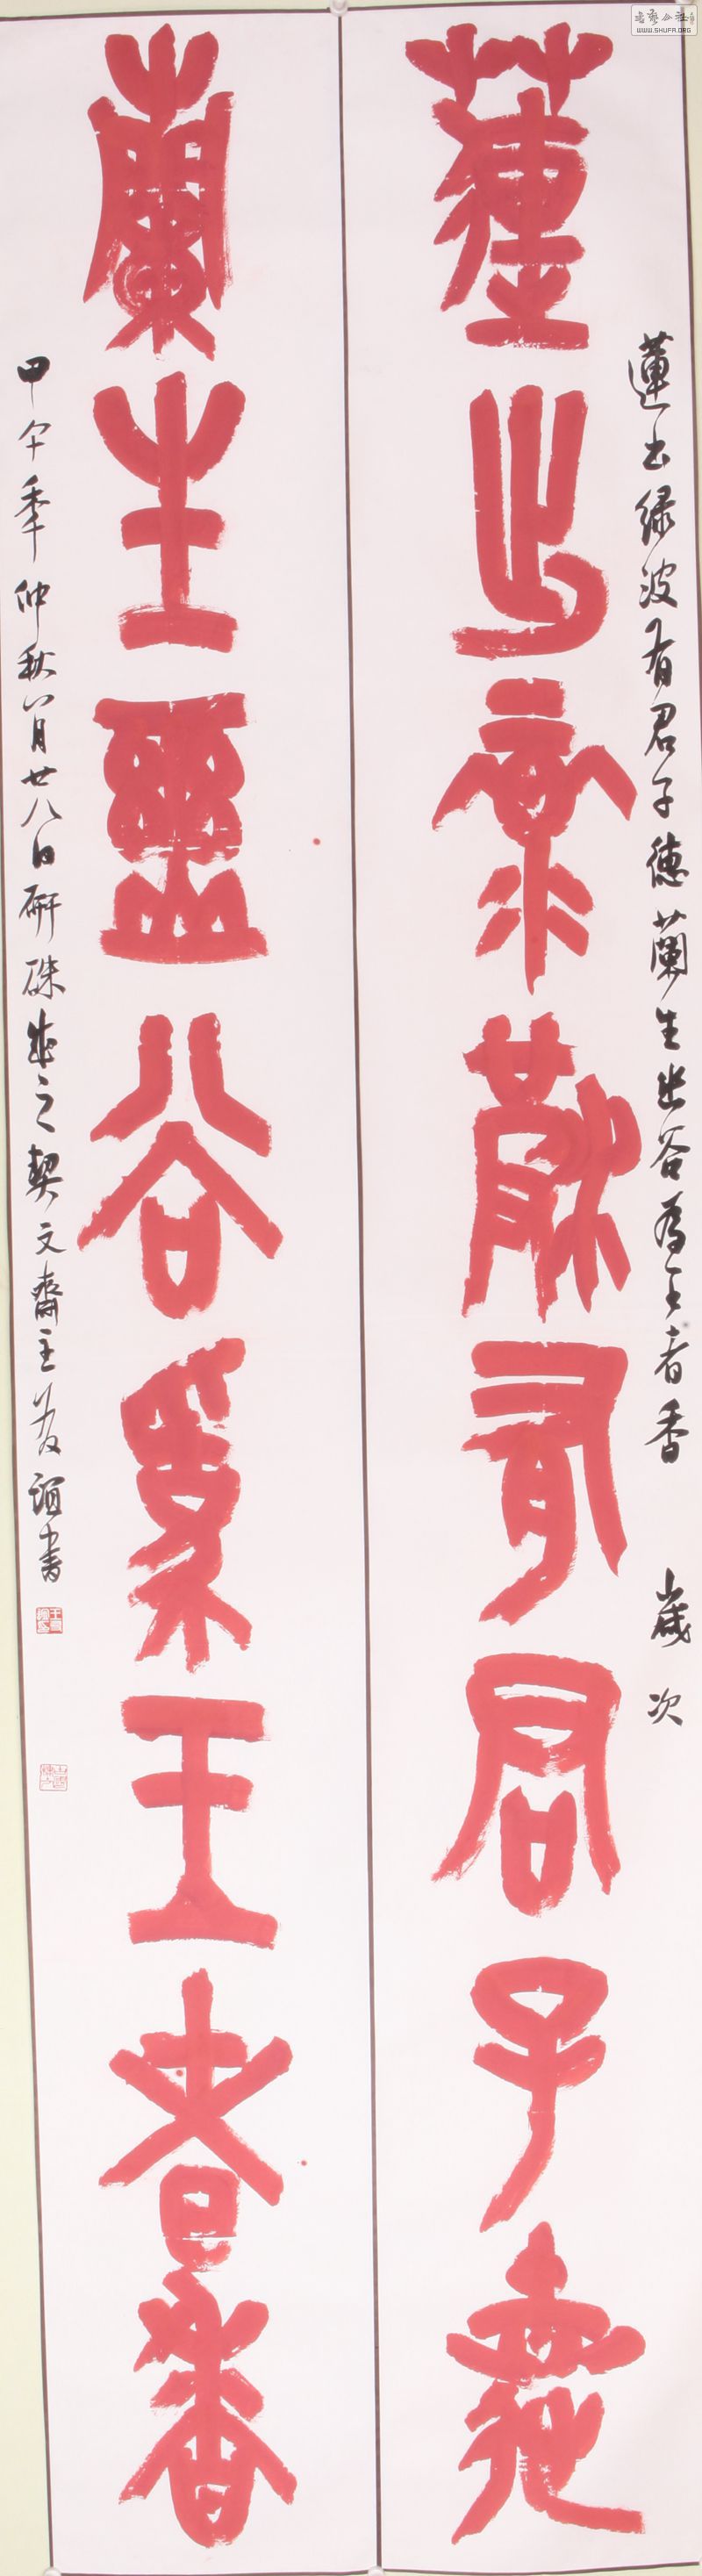 WWW.SHUFA.ORG
蓮出綠波有君子德蘭生出谷為王者香 歲次
蓮出有君子德
蘭生幽谷爲王者香
甲午季仲秋八月廿八日研硃書之契文齋主誼書